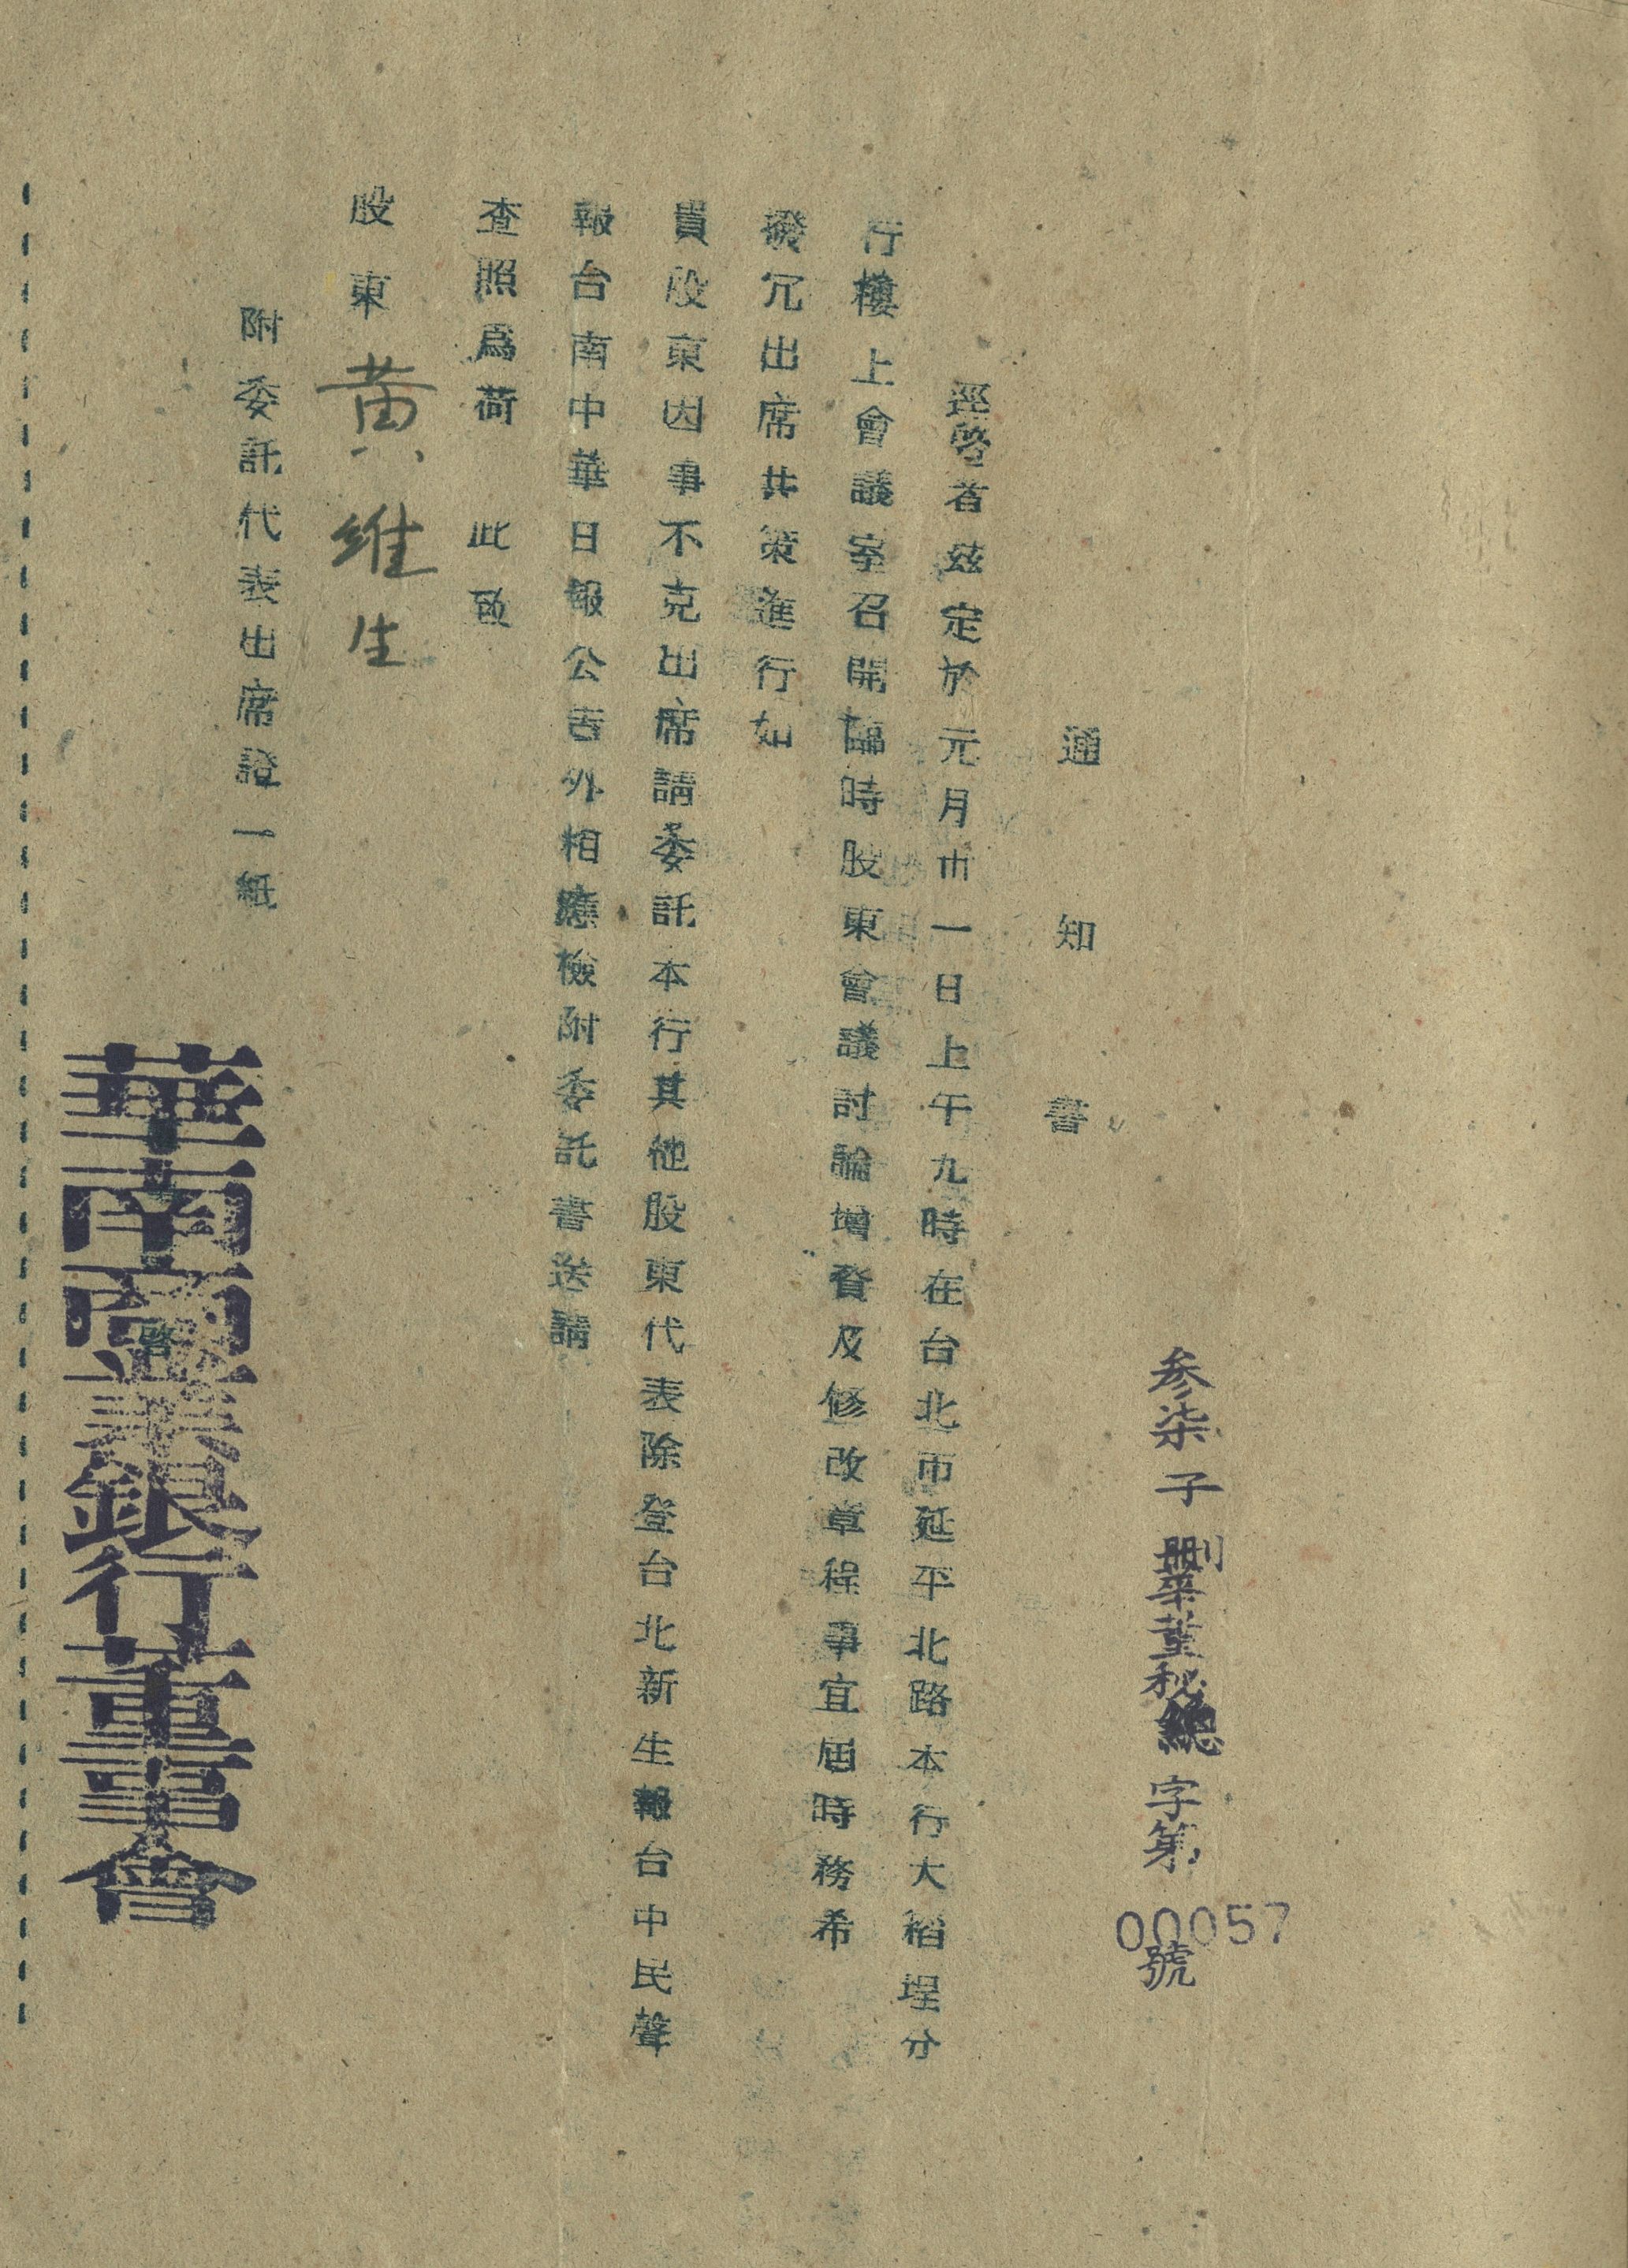 參柒子刪華董秘總字第00057號
通知書
逕啓者茲定於元月卅一日上午九時在台北市延平北路本行大稻埕分
行樓上會議室召開臨時股東會議討論增資及修改章程事宜屆時務希
撥冗出席共策進行如
貴股東因事不克出席請委託本行其他股東代表除登台北新生報台中民聲
報台南中華日報公告外相應檢附委託書送請
查照爲荷 此致
股東黃維生
附委託代表出席證一紙
華南商業銀行董事會
啓